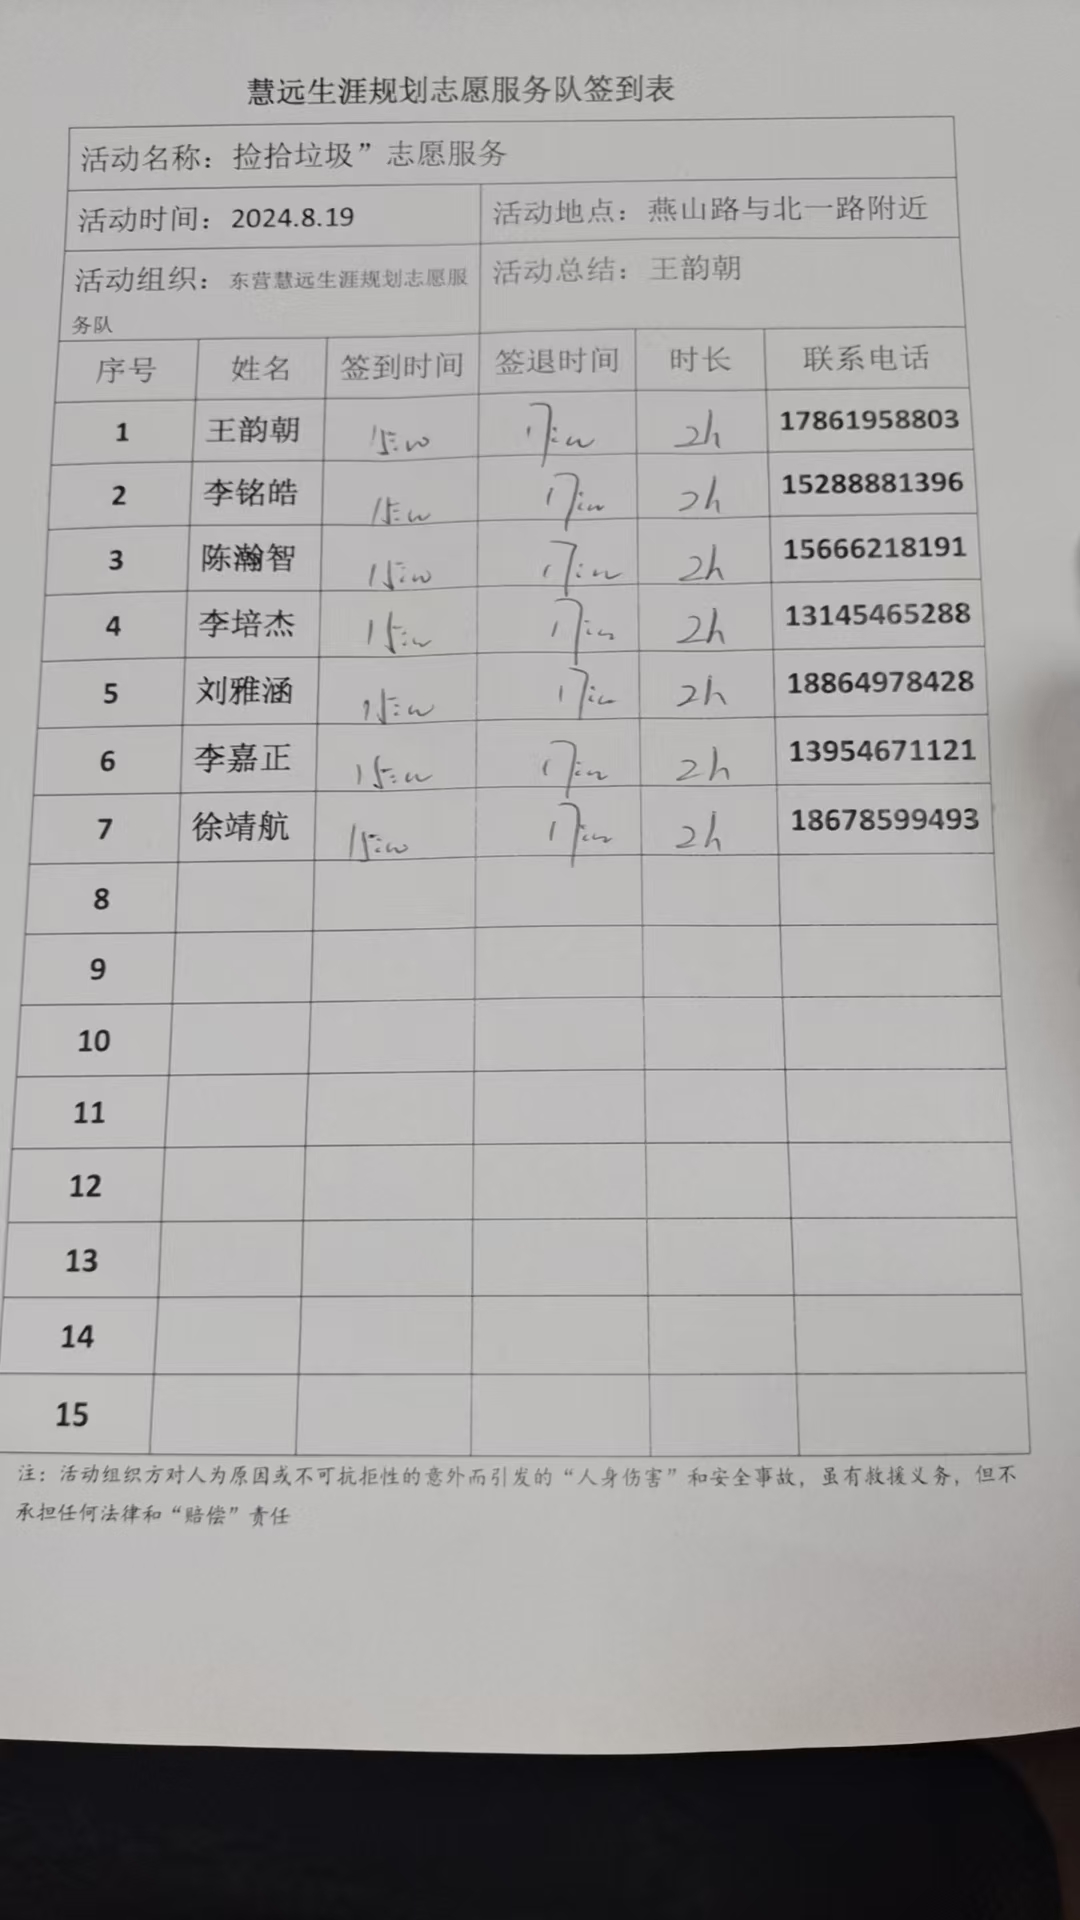 慧远生涯规划志愿服务队签到表
活动名称：捡拾垃圾”志愿服务
活动时间：2024.8.19 活动地点：燕山路与北一路附近
活动组织：东营慧远生涯规划志愿服 活动总结：王韵朝
务队
序号 姓名 签到时间 签退时间 时长 联系电话
1 王韵朝 15:00 17:00 2h 17861958803
2 李铭皓 15:00 17:00 2h 15288881396
3 陈瀚智 15:00 17:00 2h 15666218191
4 李培杰 15:00 17:00 2h 13145465288
5 刘雅涵 15:00 17:00 2h 18864978428
6 李嘉正 15:00 17:00 2h 13954671121
7 徐靖航 15:00 17:00 2h 18678599493
8
9
10
11
12
13
14
15
注：活动组织方对人为原因或不可抗拒性的意外而引发的“人身伤害”和安全事故，虽有救援义务，但不
承担任何法律和“赔偿”责任